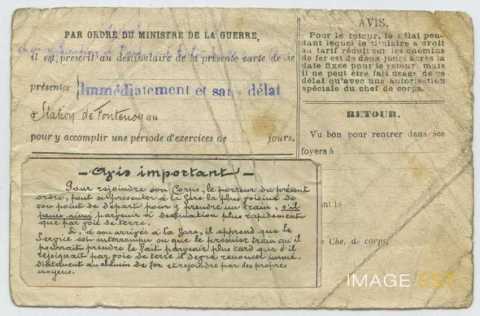 PAR ORDRE DU MINISTRE DE LA GUERRE,
il est prescrit au destinataire de la présente carte de se
présenter Immédiatement et sans délat
à Station de Fontenoy au
pour y accomplir une période d'exercices de jours.
— Avis important —
Pour rejoindre son Corps, le porteur du présent
ordre, peut se présenter à la Gare la plus voisine de
son point de départ pour y prendre un train, s'il
peut ainsi parvenir à destination plus rapidement
que par voie de terre.
Si, à son arrivée à la Gare, il apprend que le
Service est interrompu ou que le premier train qu'il
pourrait prendre le fait parvenir plus tard que s'il
rejoignait par voie de terre il devra renoncer immé-
diatement au chemin de fer et rejoindre par ses propres
moyens.
AVIS.
Pour le retour, le délai pen-
dant lequel le titulaire a droit
au tarif réduit sur les chemins
de fer est de deux jours après la
date fixée pour le retour, mais
il ne peut être fait usage de ce
délai qu'avec une autorisation
spéciale du chef de corps.
RETOUR.
Vu bon pour rentrer dans ses
foyers à
le
Le Che, de corps,
IMAGE'EST